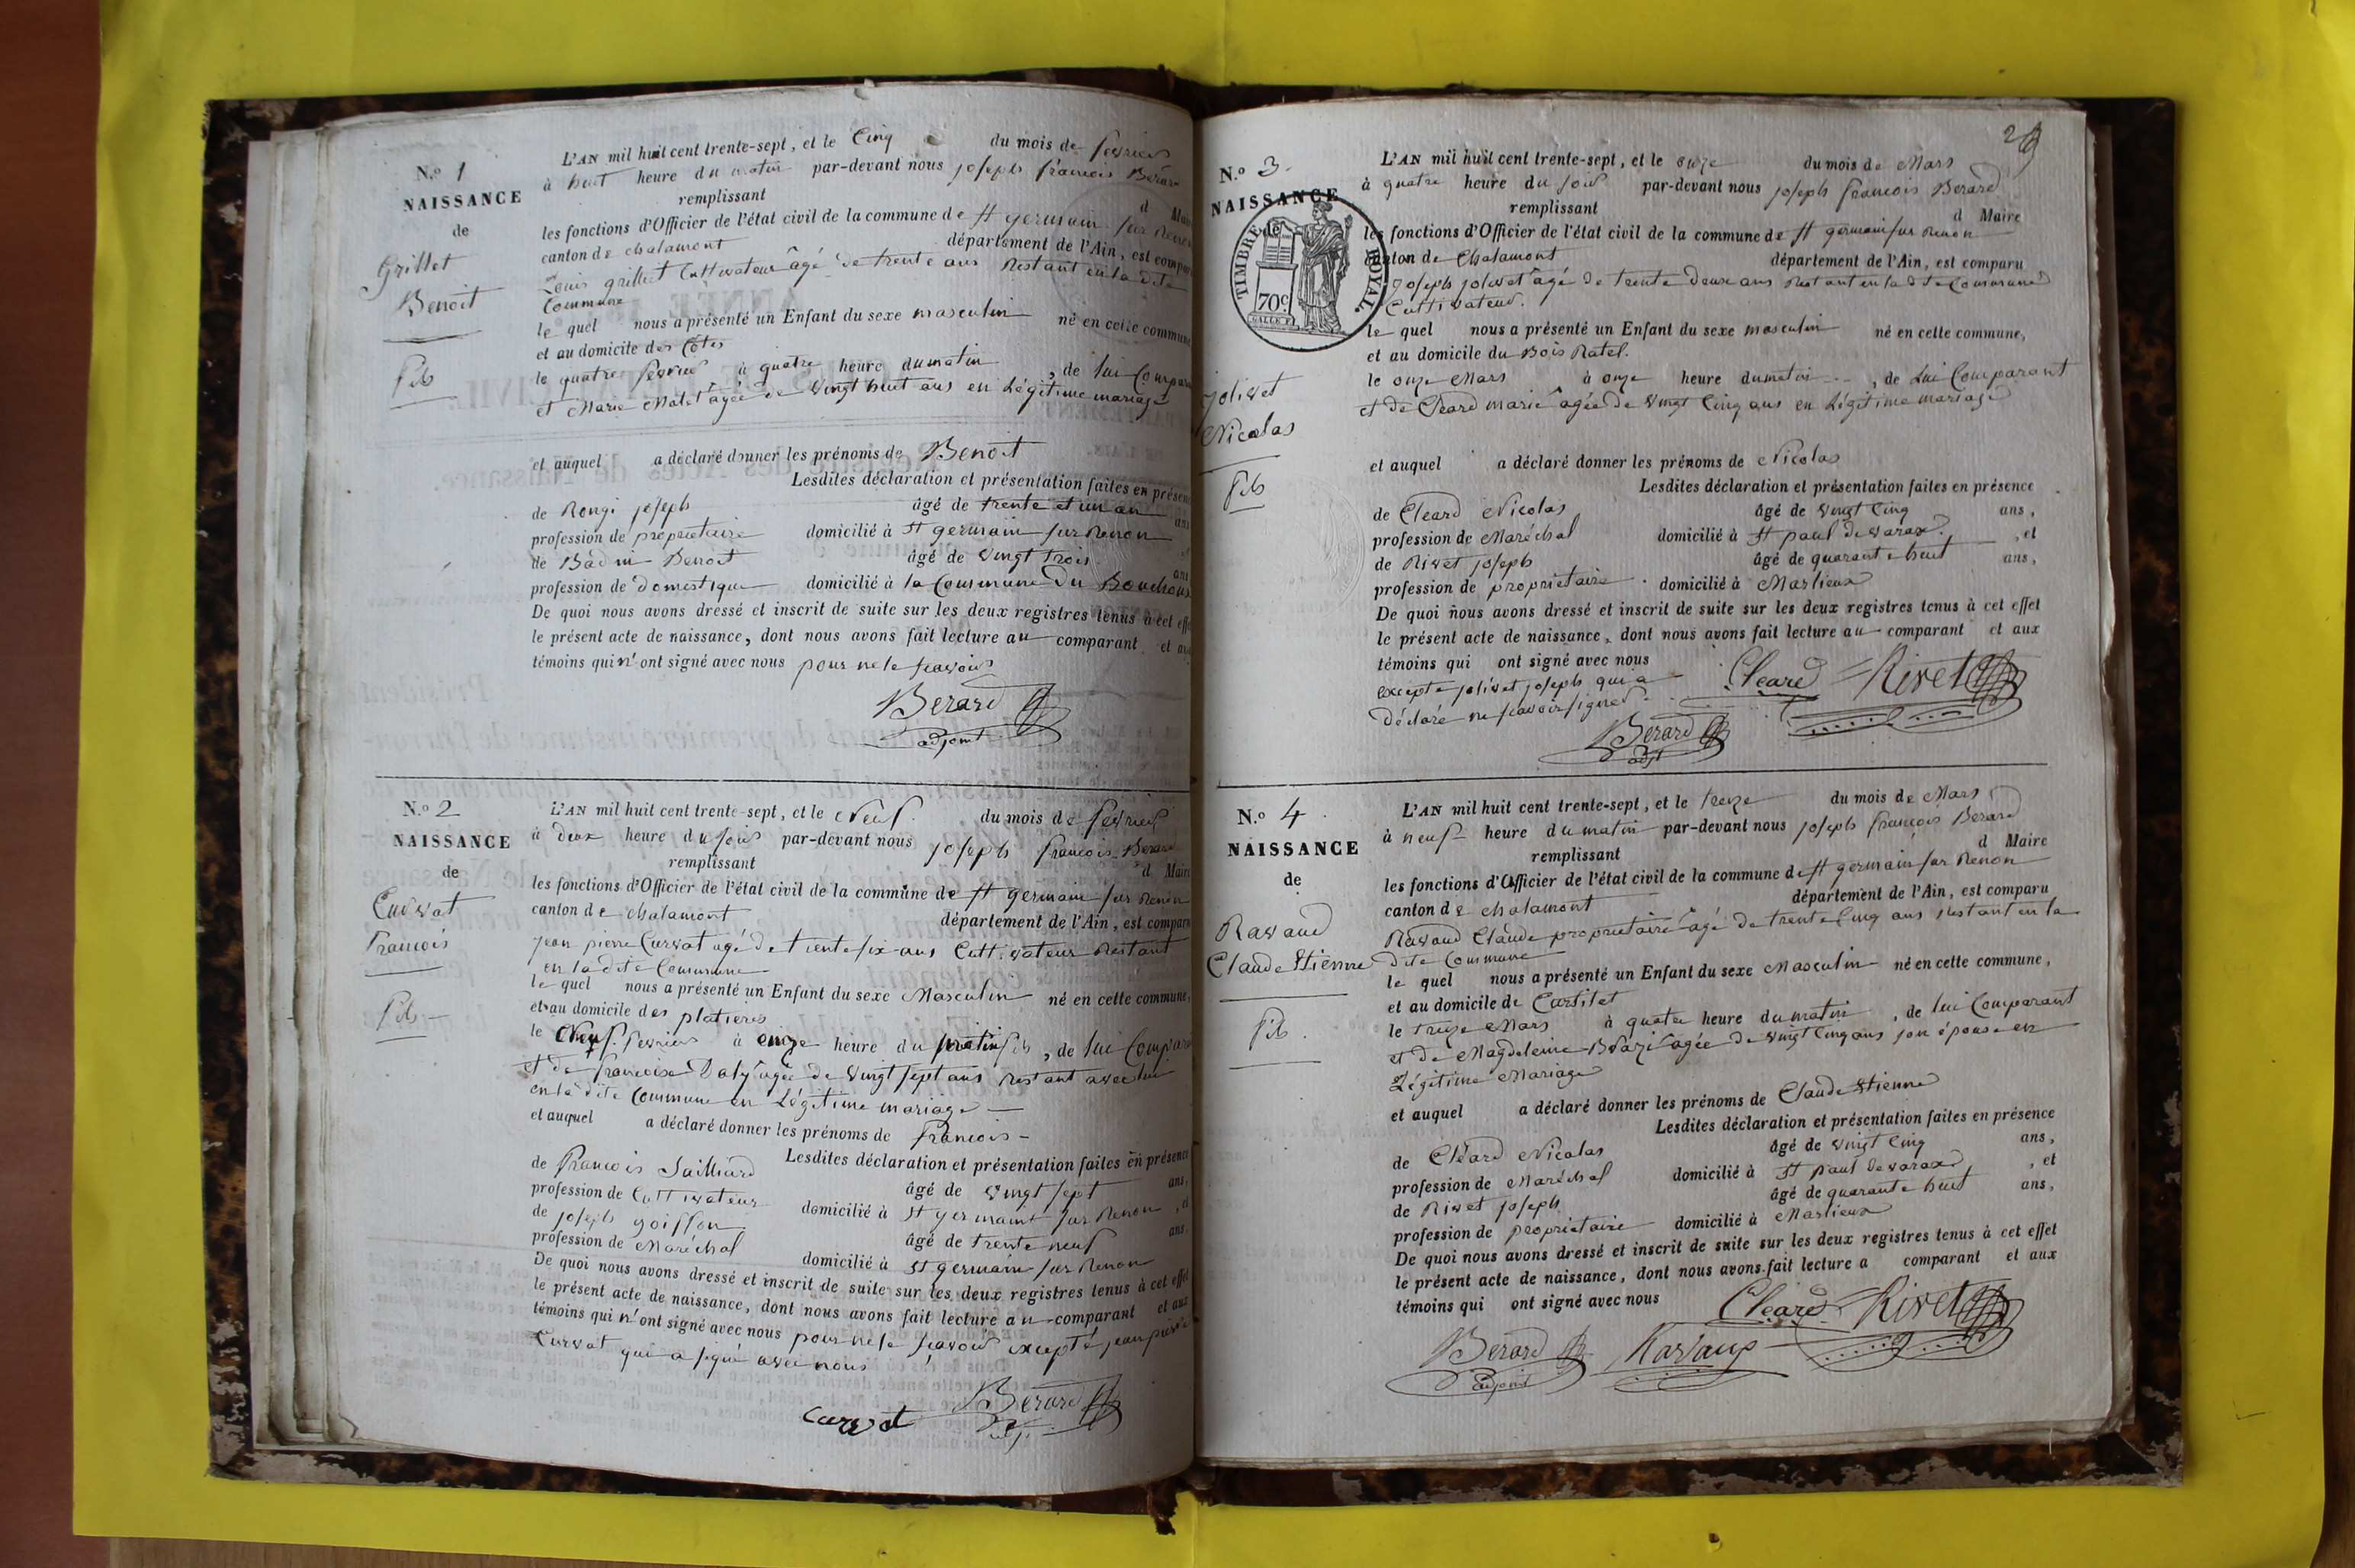 N.o 1
NAISSANCE
de
Grillet
Benoit
fils
L'AN mil huit cent trente-sept, et le Cinq du mois de fevrier
à huit heure du matin par-devant nous joseph francois Berard
remplissant d Maire
les fonctions d'Officier de l'état civil de la commune de St germain sur Renon
canton de chalamont département de l'Ain, est comparu
Louis grillet Cultivateur âgé de trente ans Restant en la dite
Commune
le quel nous a présenté un Enfant du sexe masculin né en cette commune
et au domicile des Côtes
le quatre fevrier à quatre heure du matin, de lui Comparant
et Marie Malet âgée de vingt huit ans en Légitime mariage
et auquel a déclaré donner les prénoms de Benoit
Lesdites déclaration et présentation faites en présence
de Rongi joseph âgé de trente et un an ans
profession de proprietaire domicilié à St germain sur Renon
de Badin Benoit âgé de vingt trois ans
profession de domestique domicilié à la Commune du Bouchoux
De quoi nous avons dressé et inscrit de suite sur les deux registres tenus à cet effet
le présent acte de naissance, dont nous avons fait lecture au comparant et aux
témoins qui n'ont signé avec nous pour ne le scavoir
Berard
adjoint
N.o 2
NAISSANCE
de
Curvat
Francois
fils
L'AN mil huit cent trente-sept, et le Neuf du mois de fevrier
à deux heure du soir par-devant nous joseph francois Berard
remplissant d Maire
les fonctions d'Officier de l'état civil de la commune de St germain sur Renon
canton de chalamont département de l'Ain, est comparu
jean pierre Curvat agé de trente six ans Cultivateur Restant
en la dite Commune
le quel nous a présenté un Enfant du sexe Masculin né en cette commune,
et au domicile des platieres
le Neuf fevrier à onze heure du matin, de lui Comparant
et de francoise Daly âgée de vingt sept ans Restant avec lui
en la dite Commune en Légitime mariage
et auquel a déclaré donner les prénoms de francois
Lesdites déclaration et présentation faites en présence
de francois Jailliard âgé de vingt sept ans,
profession de Cultivateur domicilié à St germaint sur Renon, et
de joseph goiffon âgé de trente neuf ans
profession de Maréchal domicilié à St germain sur Renon
De quoi nous avons dressé et inscrit de suite sur les deux registres tenus à cet effet
le présent acte de naissance, dont nous avons fait lecture au comparant et aux
témoins qui n'ont signé avec nous pour ne le scavoir excepté jean pierre
Curvat qui a signé avec nous
curvat Berard
adj.
29
N.o 3
NAISSANCE
de
TIMBRE ROYAL
70c
jolivet
Nicolas
fils
L'AN mil huit cent trente-sept, et le onze du mois de Mars
à quatre heure du soir par-devant nous joseph francois Berard
remplissant d Maire
les fonctions d'Officier de l'état civil de la commune de St germain sur Renon
canton de Chalamont département de l'Ain, est comparu
joseph jolivet âgé de trente deux ans Restant en la dte Commune
Cultivateur.
le quel nous a présenté un Enfant du sexe masculin né en cette commune,
et au domicile du Bois Ratel.
le onze Mars à onze heure du matin, de Lui Comparant
et de Cleard marie âgée de vingt Cinq ans en Légitime mariage
et auquel a déclaré donner les prénoms de Nicolas
Lesdites déclaration et présentation faites en présence
de Cleard Nicolas âgé de vingt Cinq ans,
profession de Maréchal domicilié à St paul de varax, et
de Rivet joseph âgé de quarante huit ans,
profession de proprietaire domicilié à Marlieux
De quoi nous avons dressé et inscrit de suite sur les deux registres tenus à cet effet
le présent acte de naissance, dont nous avons fait lecture au comparant et aux
témoins qui ont signé avec nous
excepté jolivet joseph qui a
déclaré ne scavoir signer
Cleard Rivet
Berard
adjt
N.o 4
NAISSANCE
de
Ravaud
Claude Etienne
fils
L'AN mil huit cent trente-sept, et le treize du mois de Mars
à neuf heure du matin par-devant nous joseph francois Berard
remplissant d Maire
les fonctions d'Officier de l'état civil de la commune de St germain sur Renon
canton de chalamont département de l'Ain, est comparu
Ravaud Claude proprietaire âgé de trente Cinq ans restant en la
dite Commune
le quel nous a présenté un Enfant du sexe Masculin né en cette commune,
et au domicile de Castilet
le treize Mars à quatre heure du matin, de lui Comparant
et de Magdeleine agée de vingt Cinq ans son épouse en
Légitime Mariage
et auquel a déclaré donner les prénoms de Claude Etienne
Lesdites déclaration et présentation faites en présence
de Cléard Nicolas âgé de vingt Cinq ans,
profession de Maréchal domicilié à St paul de varax, et
de Rivet joseph âgé de quarante huit ans,
profession de proprietaire domicilié à Marlieux
De quoi nous avons dressé et inscrit de suite sur les deux registres tenus à cet effet
le présent acte de naissance, dont nous avons fait lecture a comparant et aux
témoins qui ont signé avec nous
Cleard Rivet
Berard
adjoint